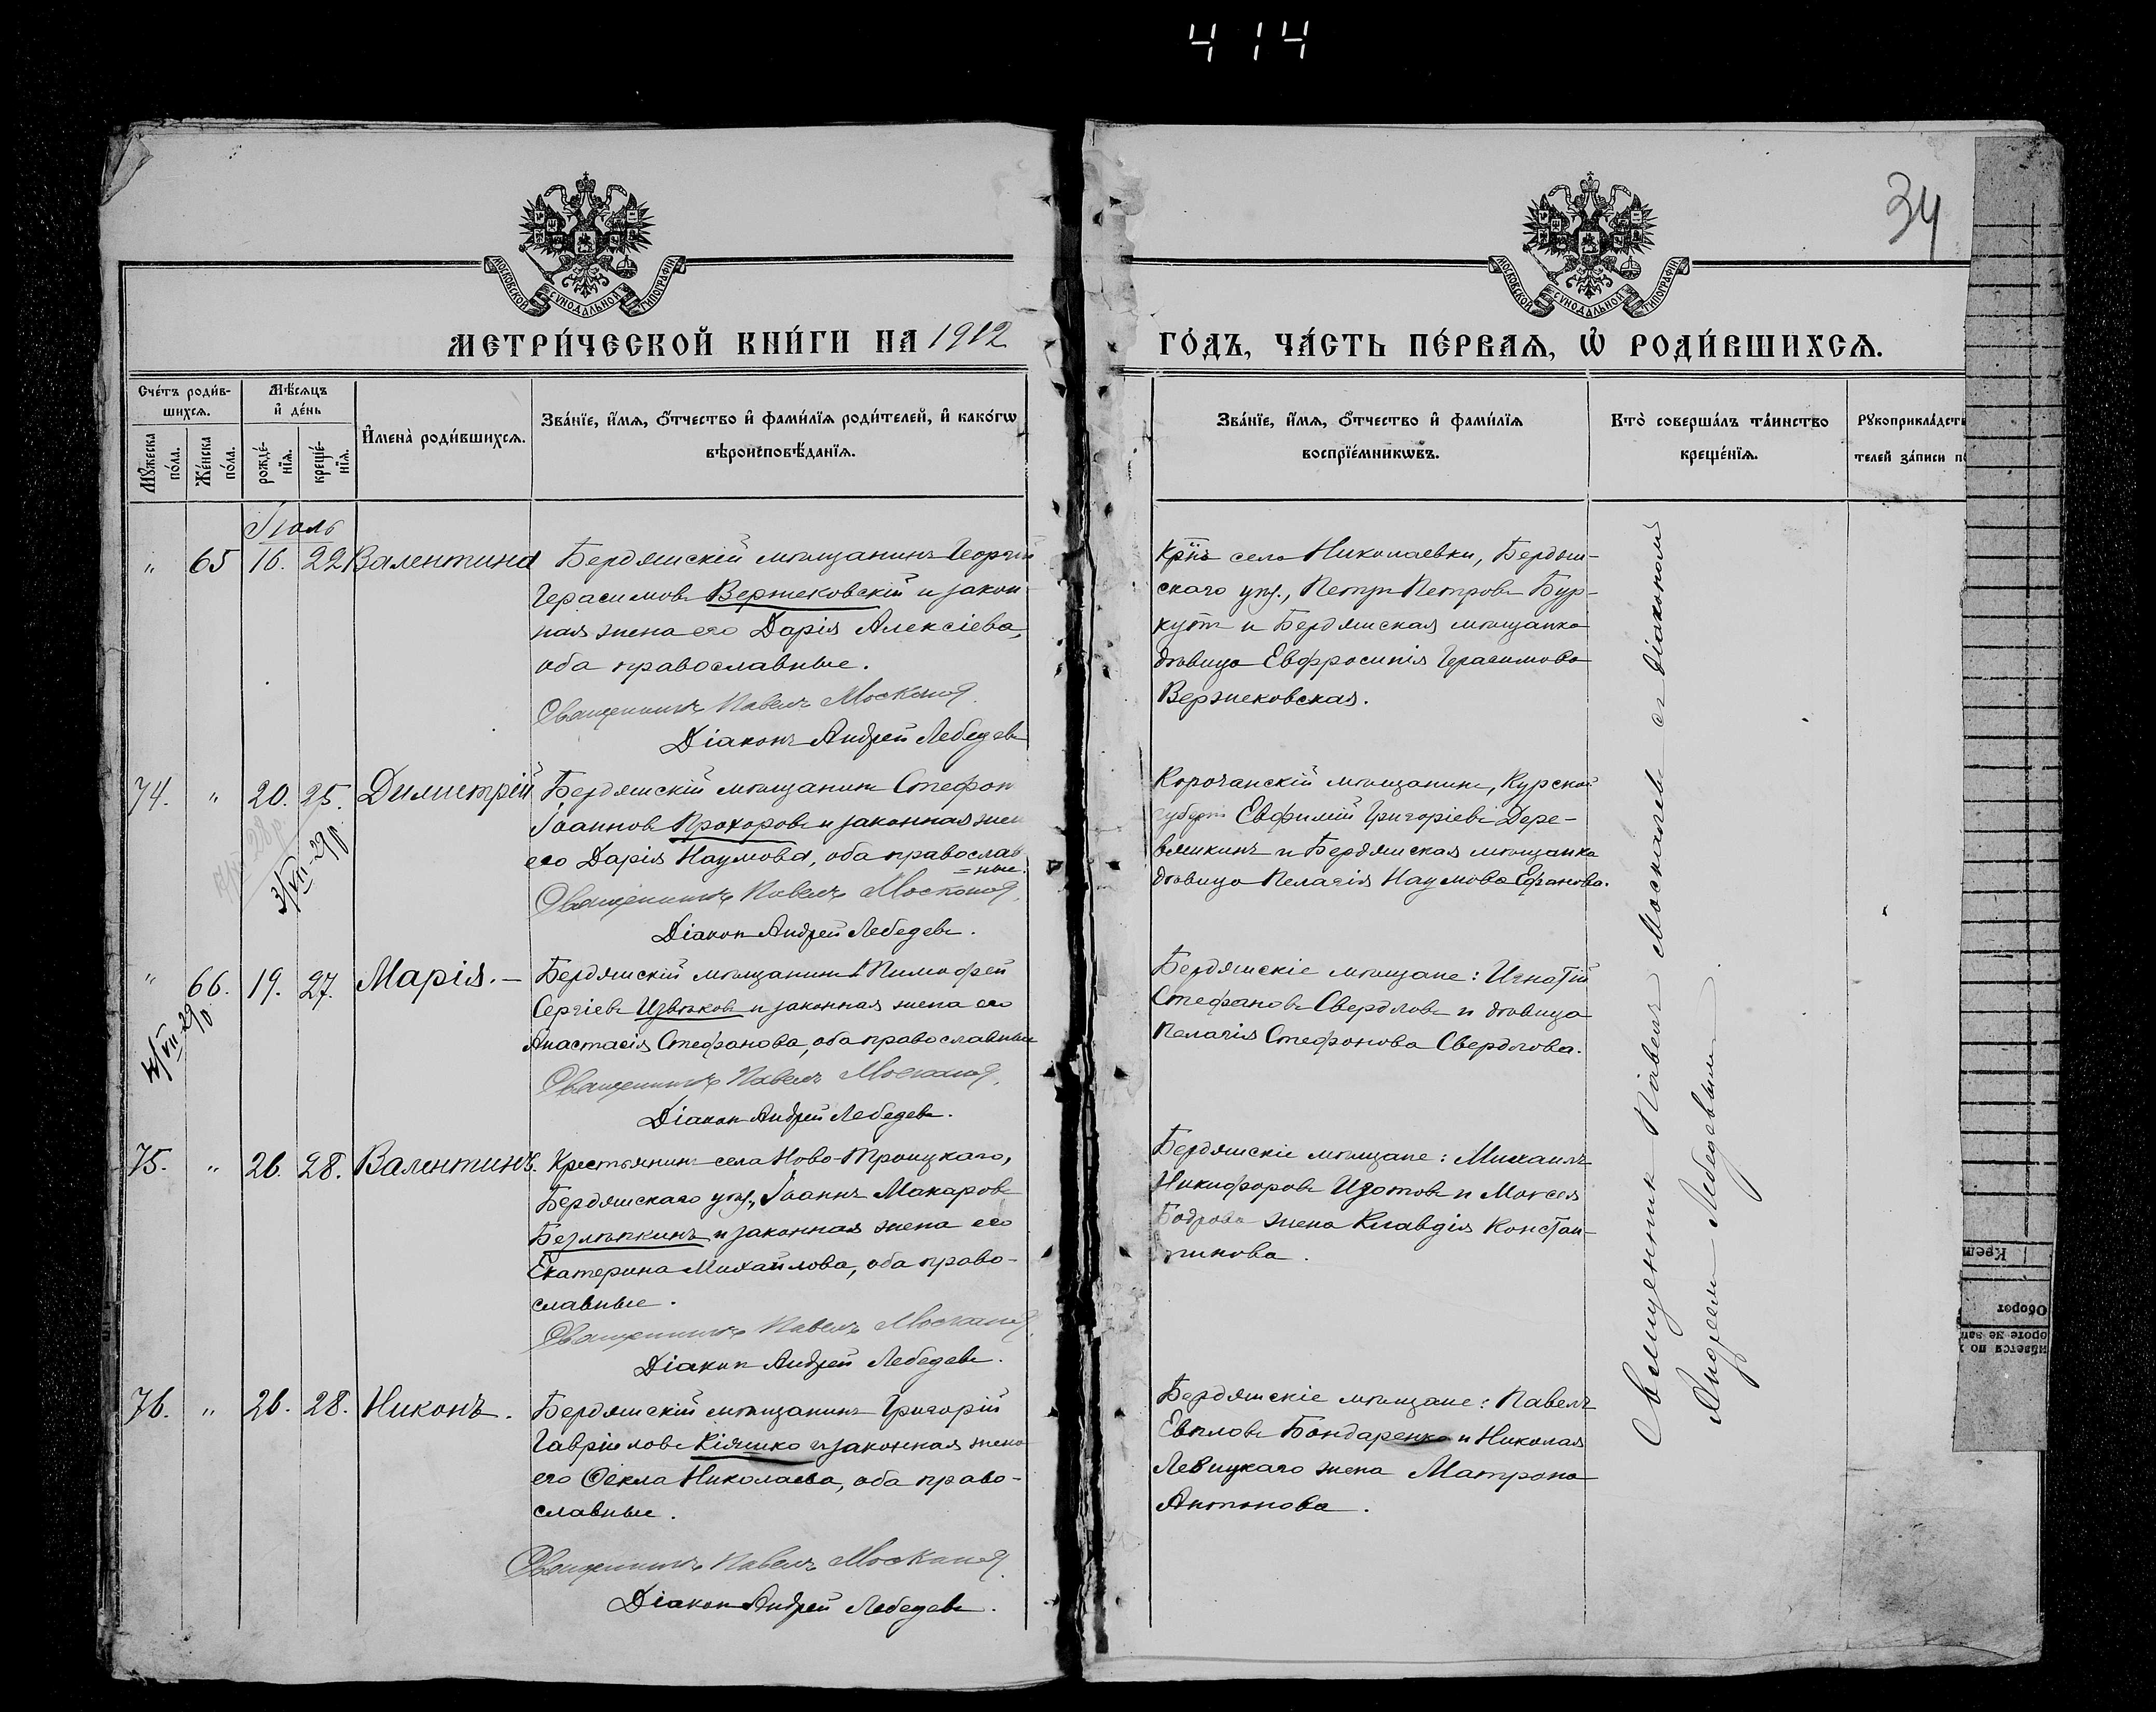 414
34
МОСКОВСКОЙ СѴНОДАЛЬНОЙ ТИПОГРАФІИ
МОСКОВСКОЙ СѴНОДАЛЬНОЙ ТИПОГРАФІИ
МЕТРИ́ЧЕСКОЙ КНИ́ГИ НА 1912
ГО́ДЪ, ЧА́СТЬ ПЕ́РВАѦ, Ѡ҆ РОДИ́ВШИХСѦ.
Сче́тъ роди́в-
шихсѧ.
Мꙋ́жеска по́ла.
Же́нска по́ла.
Мѣ́сѧцъ
и҆ де́нь
рожде́-
нїѧ.
креще́-
нїѧ.
И҆мена̀ роди́вшихсѧ.
Зва́нїе, и҆́мѧ, ѻ҆́тчество и҆ фами́лїѧ роди́телей, и҆ како́гѡ
вѣроисповѣ́данїѧ.
Зва́нїе, и҆́мѧ, ѻ҆́тчество и҆ фами́лїѧ
воспрїе́мникѡвъ.
Кто̀ соверша́лъ та́инство
креще́нїѧ.
Рꙋкоприкла́дст
телей за́писи п
Іюль
" 65 16. 22 Валентина
Бердянскій мѣщанинъ Георгій
Герасимовъ Вержековскій и закон-
ная жена его Дарія Алексіева,
оба православные.
Священникъ Павелъ Москалевъ
Діаконъ Андрей Лебедевъ
Крнъ села Николаевки, Бердян-
скаго уѣз., Петръ Петровъ Бур-
кутъ и Бердянская мѣщанка
дѣвица Евфросинія Герасимова
Вержековская.
74. " 20. 25. Димитрій
Бердянскій мѣщанинъ Стефан
Іоанновъ Прохоровъ и законная жен
его Дарія Наумова, оба православ
=ные.
Священникъ Павелъ Москалевъ
Діаконъ Андрей Лебедевъ.
Корочанскій мѣщанинъ, Курской
губерн Евфимій Григоріевъ Дере-
вянкинъ и Бердянская мѣщанка
дѣвица Пелагія Наумова Ефанова.
3/VII-29 р
" 66. 19. 27. Марія.—
Бердянскій мѣщанинъ Тимофей
Сергіевъ Извѣковъ и законная жена его
Анастасія Стефанова, оба православные
Священникъ Павелъ Москалевъ
Діаконъ Андрей Лебедевъ.
Бердянскіе мѣщане: Игнатій
Стефановъ Свердловъ и дѣвица
Пелагія Стефанова Свердлова.
75. " 26. 28. Валентинъ.
Крестьянинъ села Ново-Троицкаго,
Бердянскаго уѣз., Іоаннъ Макаровъ
Безлѣпкинъ и законная жена его
Екатерина Михайлова, оба право-
славные.
Священникъ Павелъ Москалевъ
Діаконъ Андрей Лебедевъ.
Бердянскіе мѣщане: Михаилъ
Никифоровъ Изотовъ и Моисея
Бодрова жена Клавдія Констан-
тинова.
76. " 26. 28. Никонъ.
Бердянскій мѣщанинъ Григорій
Гавріиловъ Кіяшко и законная жена
его Ѳекла Николаева, оба право-
славные.
Священникъ Павелъ Москалевъ
Діаконъ Андрей Лебедевъ.
Бердянскіе мѣщане: Павелъ
Евпловъ Бондаренко и Николая
Левицкаго жена Матрона
Антонова.
Священникъ Павелъ Москалевъ съ діакономъ
Андреемъ Лебедевымъ
Крест
Оборот